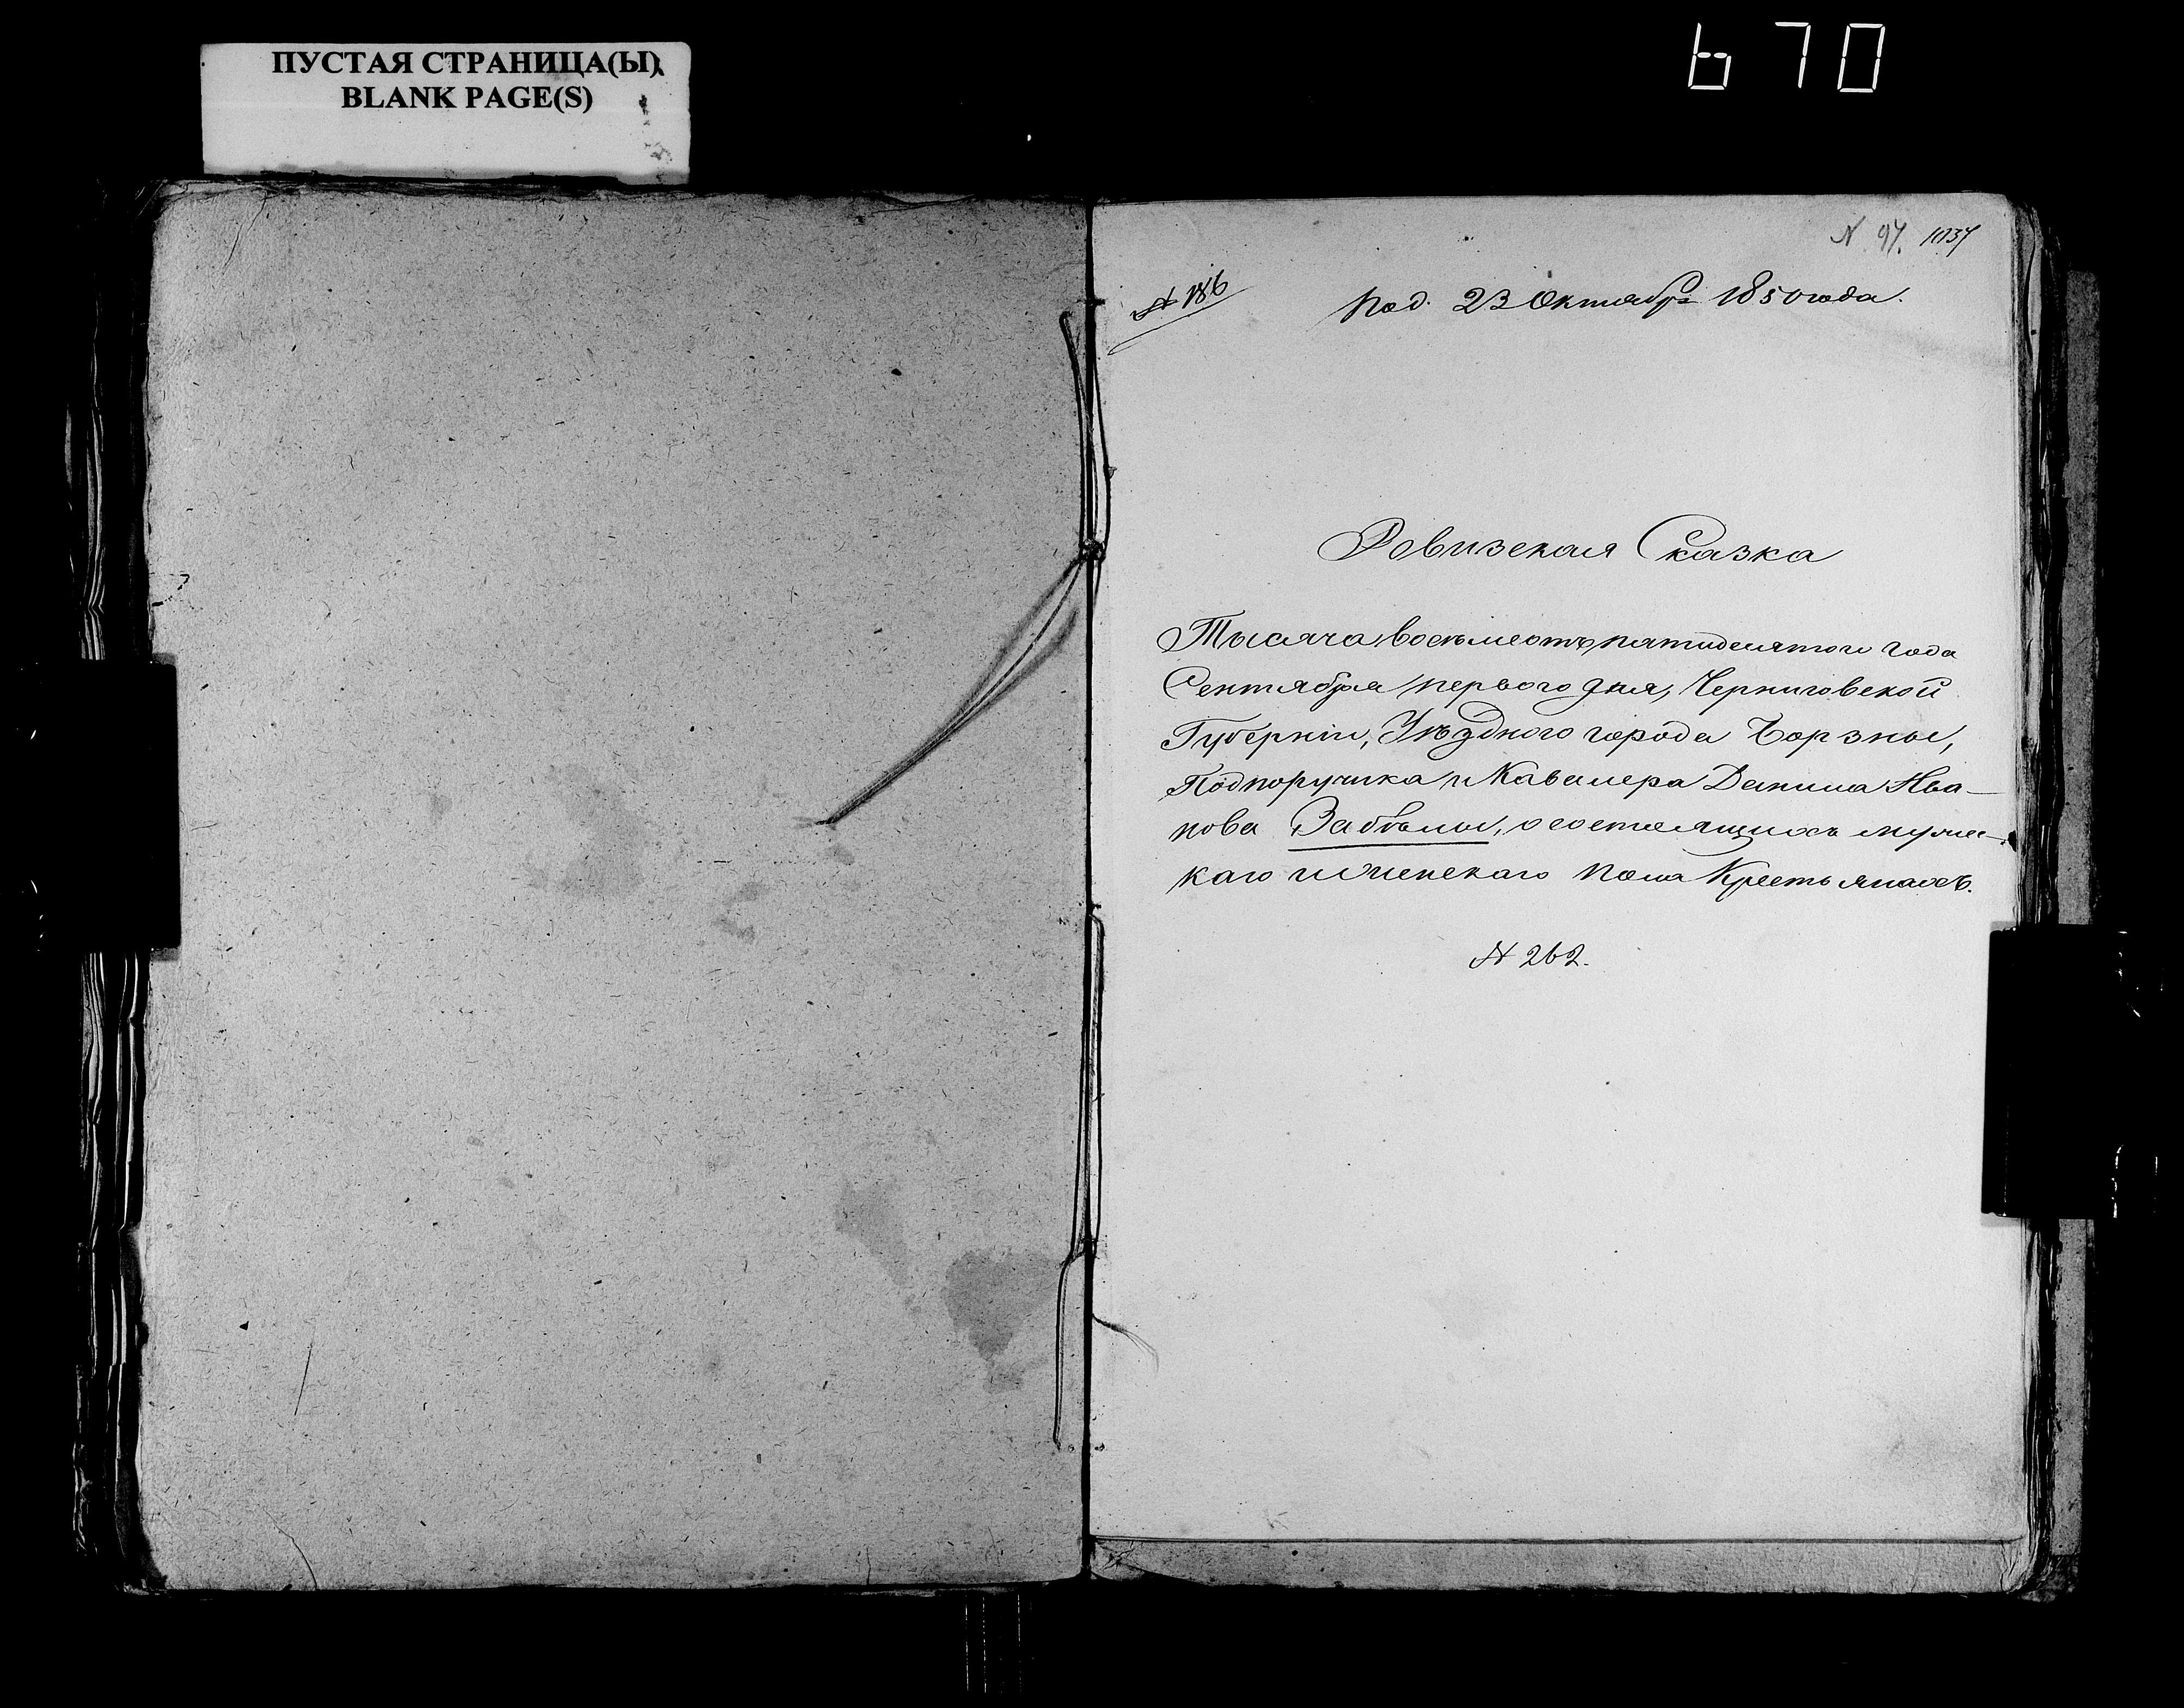 ПУСТАЯ СТРАНИЦА(Ы)
BLANK PAGE(S)
670
N 97. 1037
№ 186
Под. 23 Октября 1850 года.
Ревизская Сказка
Тысяча восемьсотъ пятидесятого года
Сентября первого дня, Черниговской
Губерніи, Уѣздного города Борзны,
Подпоручика и Кавалера Данила Ива-
нова Забѣлы, о состоящихъ мужес-
каго и женскаго пола Крестьянахъ.
№ 262.